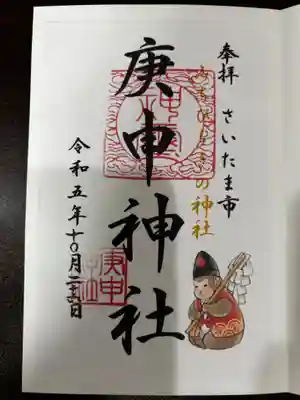 奉拝 さいたま市
の神社
庚申神社
令和五年十月
庚申